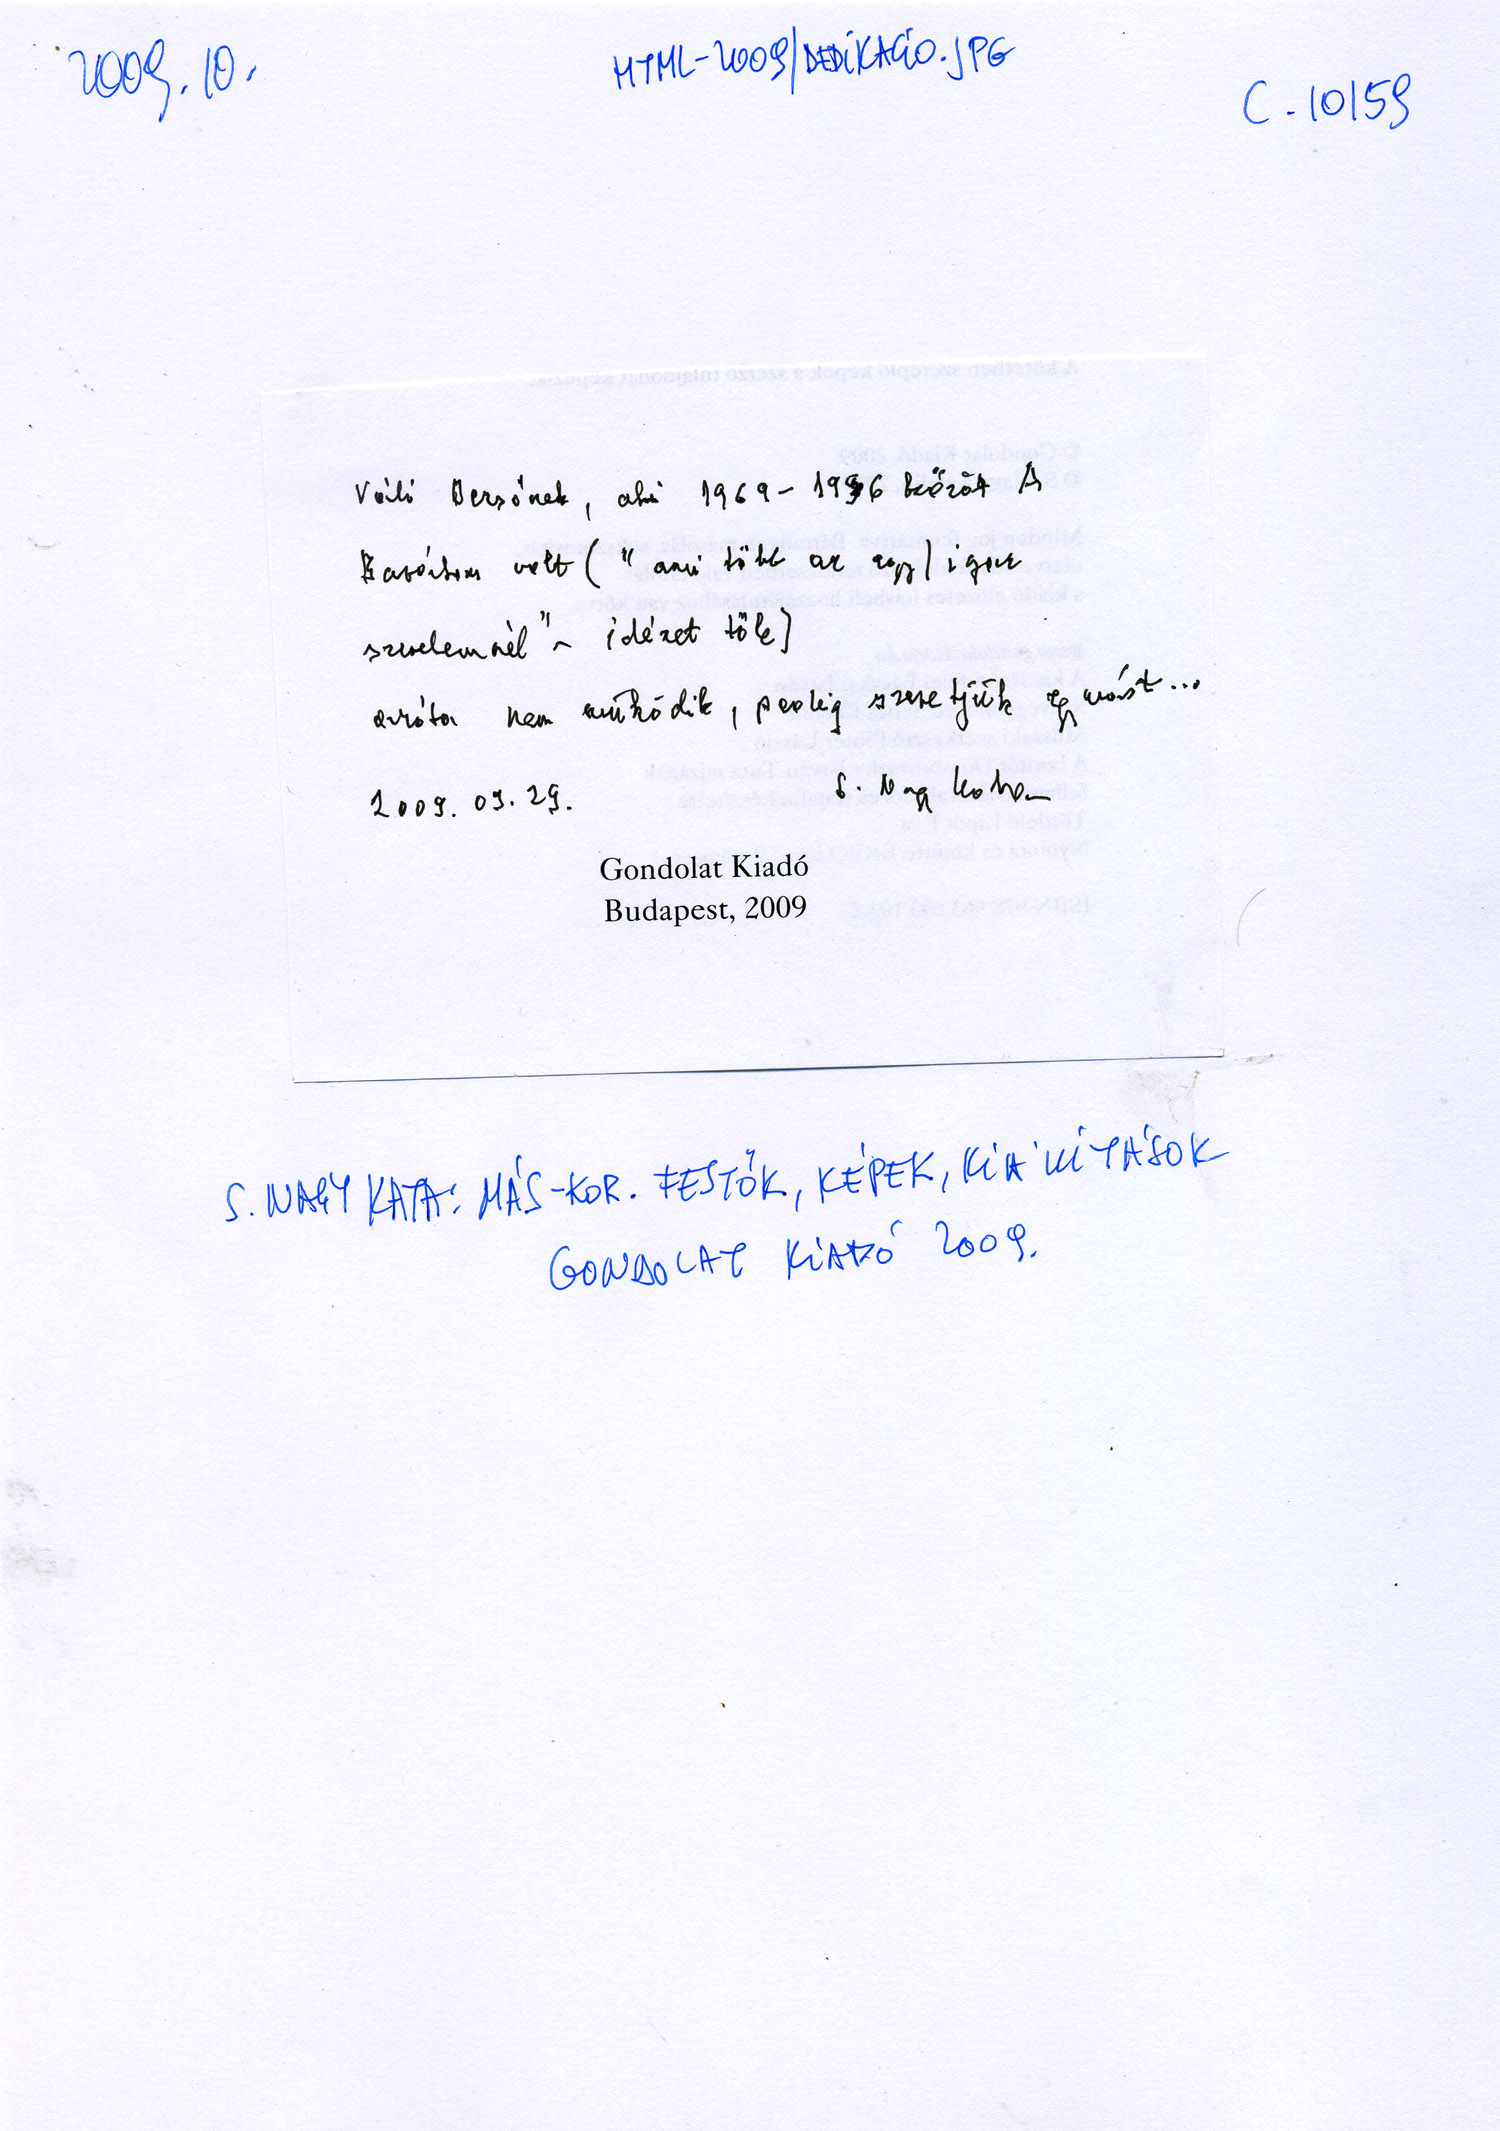 2009.10.
HTML-2009/DEDIKACIO.JPG
C-10159
Dezsőnek, aki 1969-1996 között A
Barátom volt ("ami több az egy/igaz
szerelemnél" - idézet tőle)
azóta nem működik, pedig szeretjük egymást...
2009. 09. 29. S. Nagy Kata
Gondolat Kiadó
Budapest, 2009
S. NAGY KATA: MÁS-KOR. FESTŐK, KÉPEK, KIÁLLÍTÁSOK
GONDOLAT KIADÓ 2009.